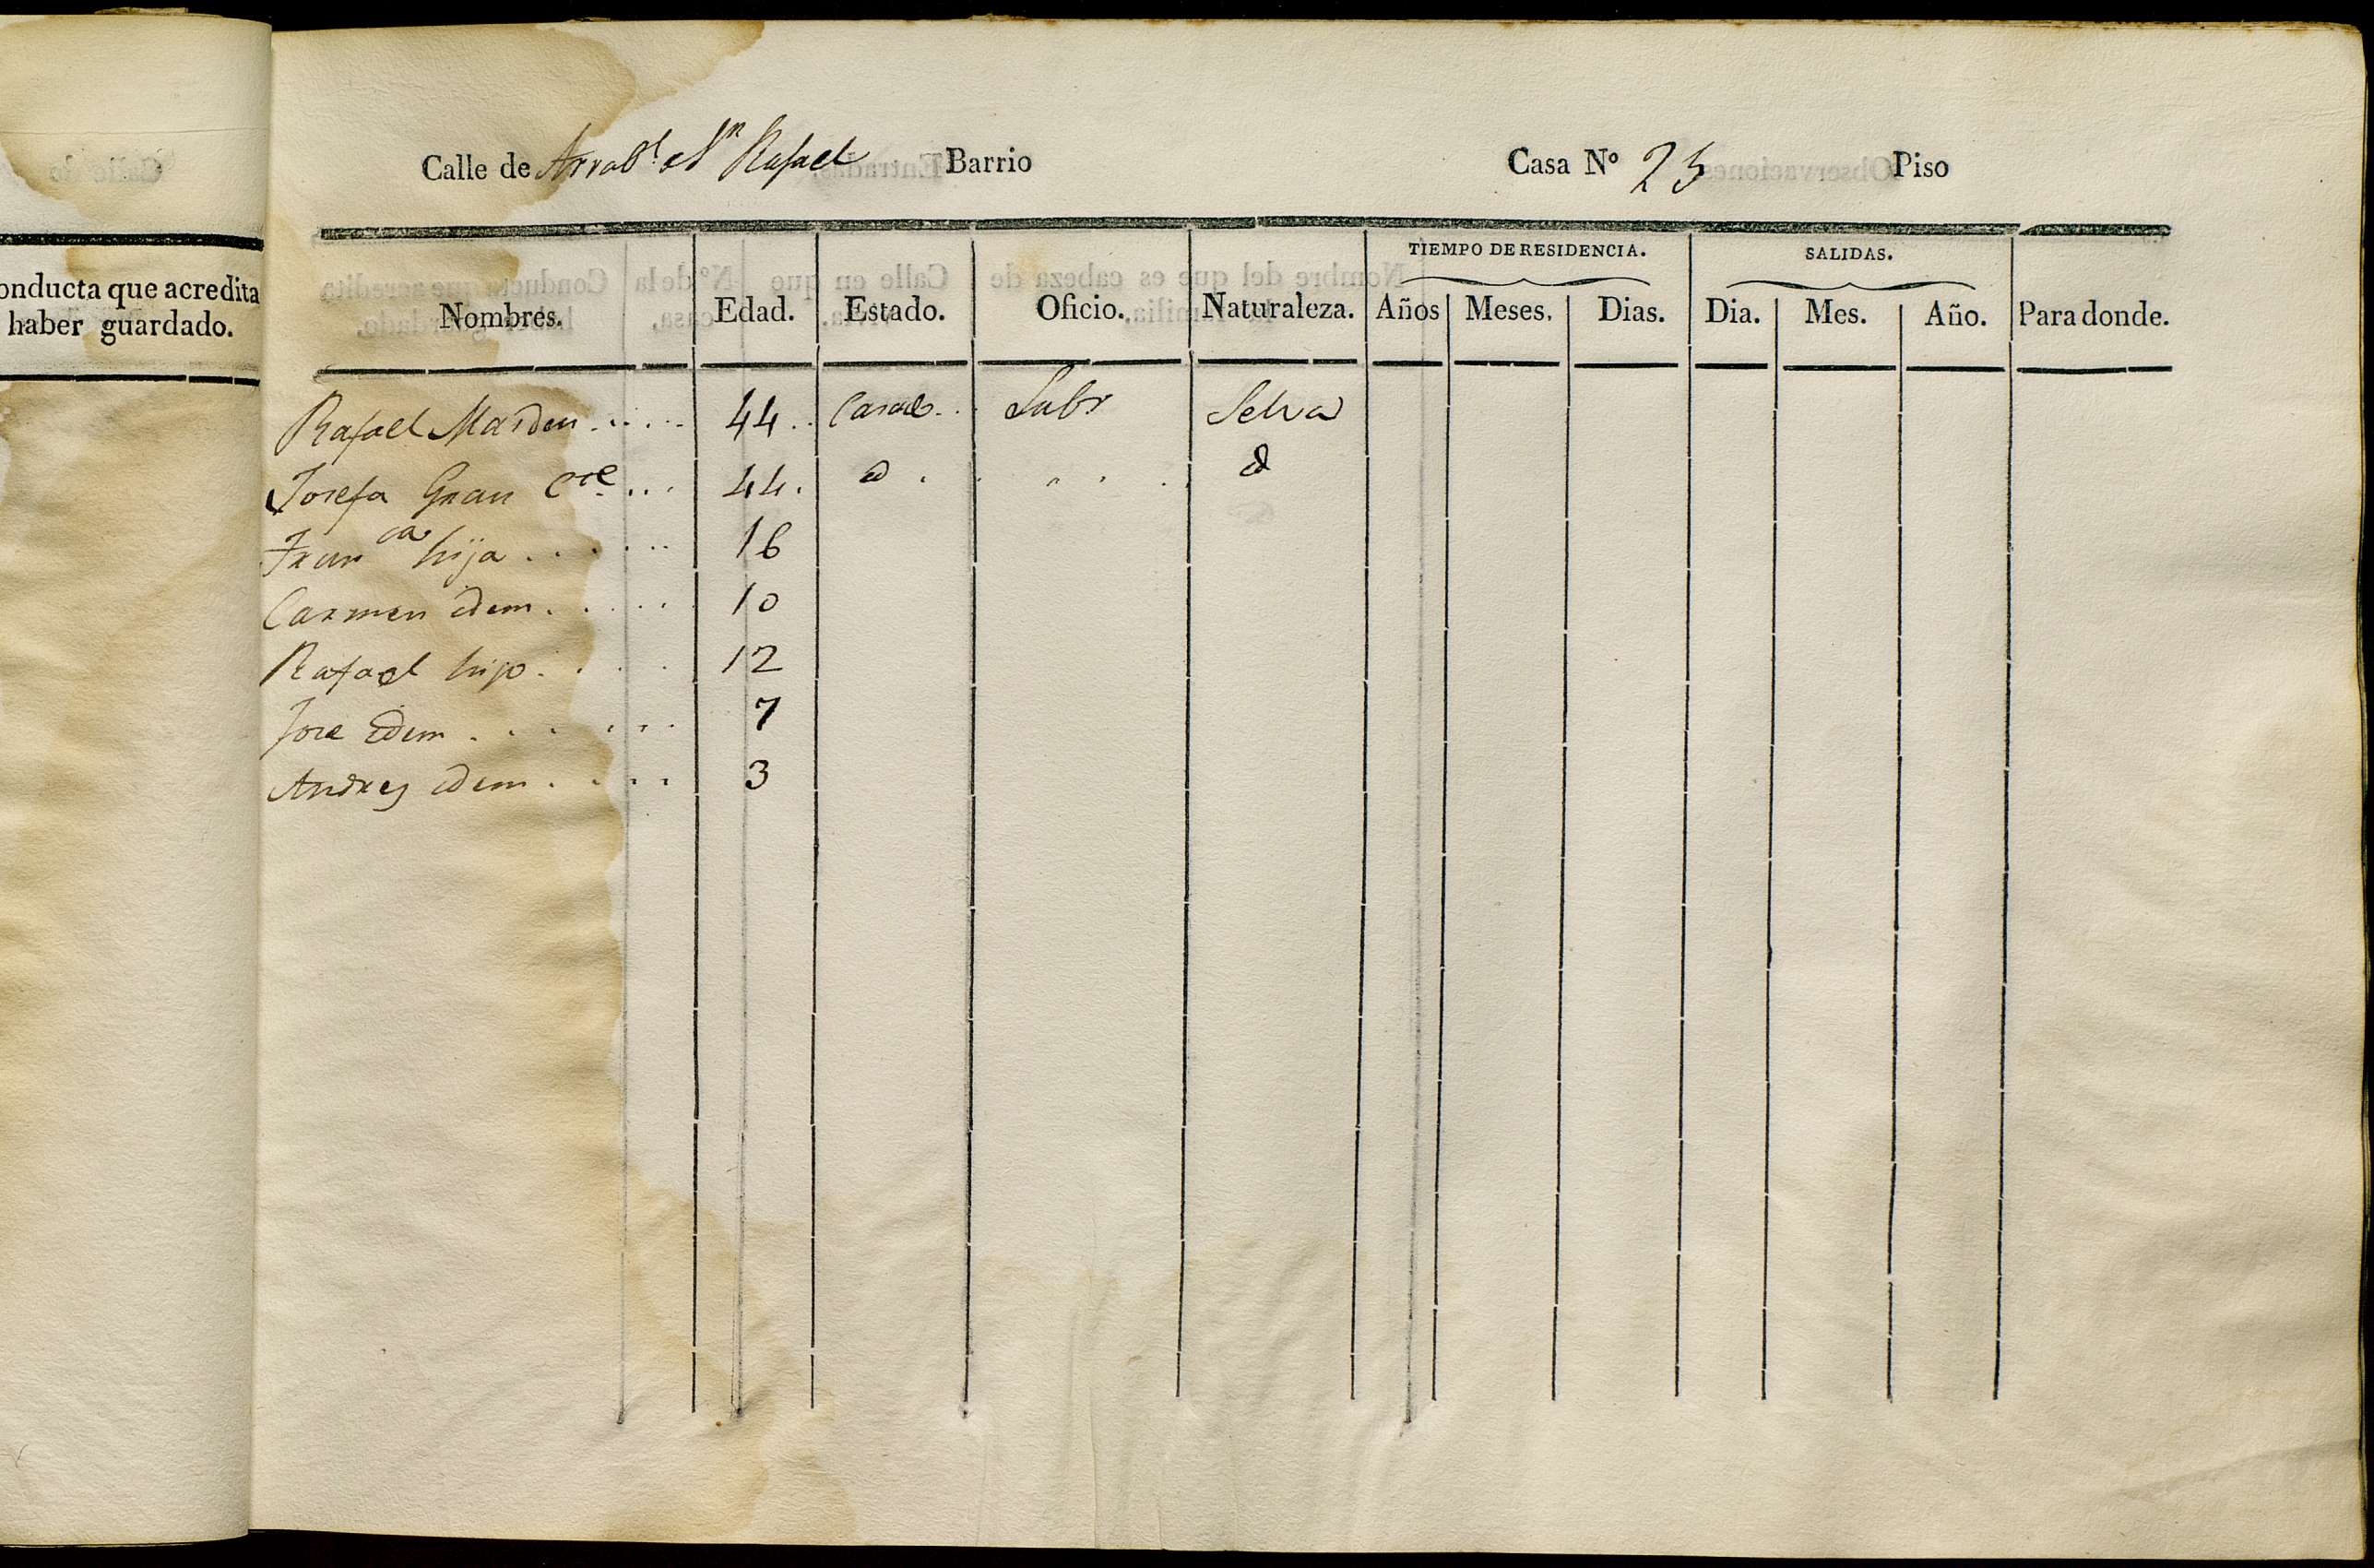 Calle de Arrab.l S.n Rafael Barrio Casa Nº 25 Piso
TIEMPO DE RESIDENCIA. SALIDAS.
onducta que acredita
haber guardado.
Nombres. Edad. Estado. Oficio. Naturaleza. Años Meses. Dias. Dia. Mes. Año. Para donde.
Rafael 44 Casado Labr Selva
Josefa Grau 44. id id
Fran ca hija 16
Carmen idem 10
Rafael hijo 12
Jose idem 7
Andres idem 3